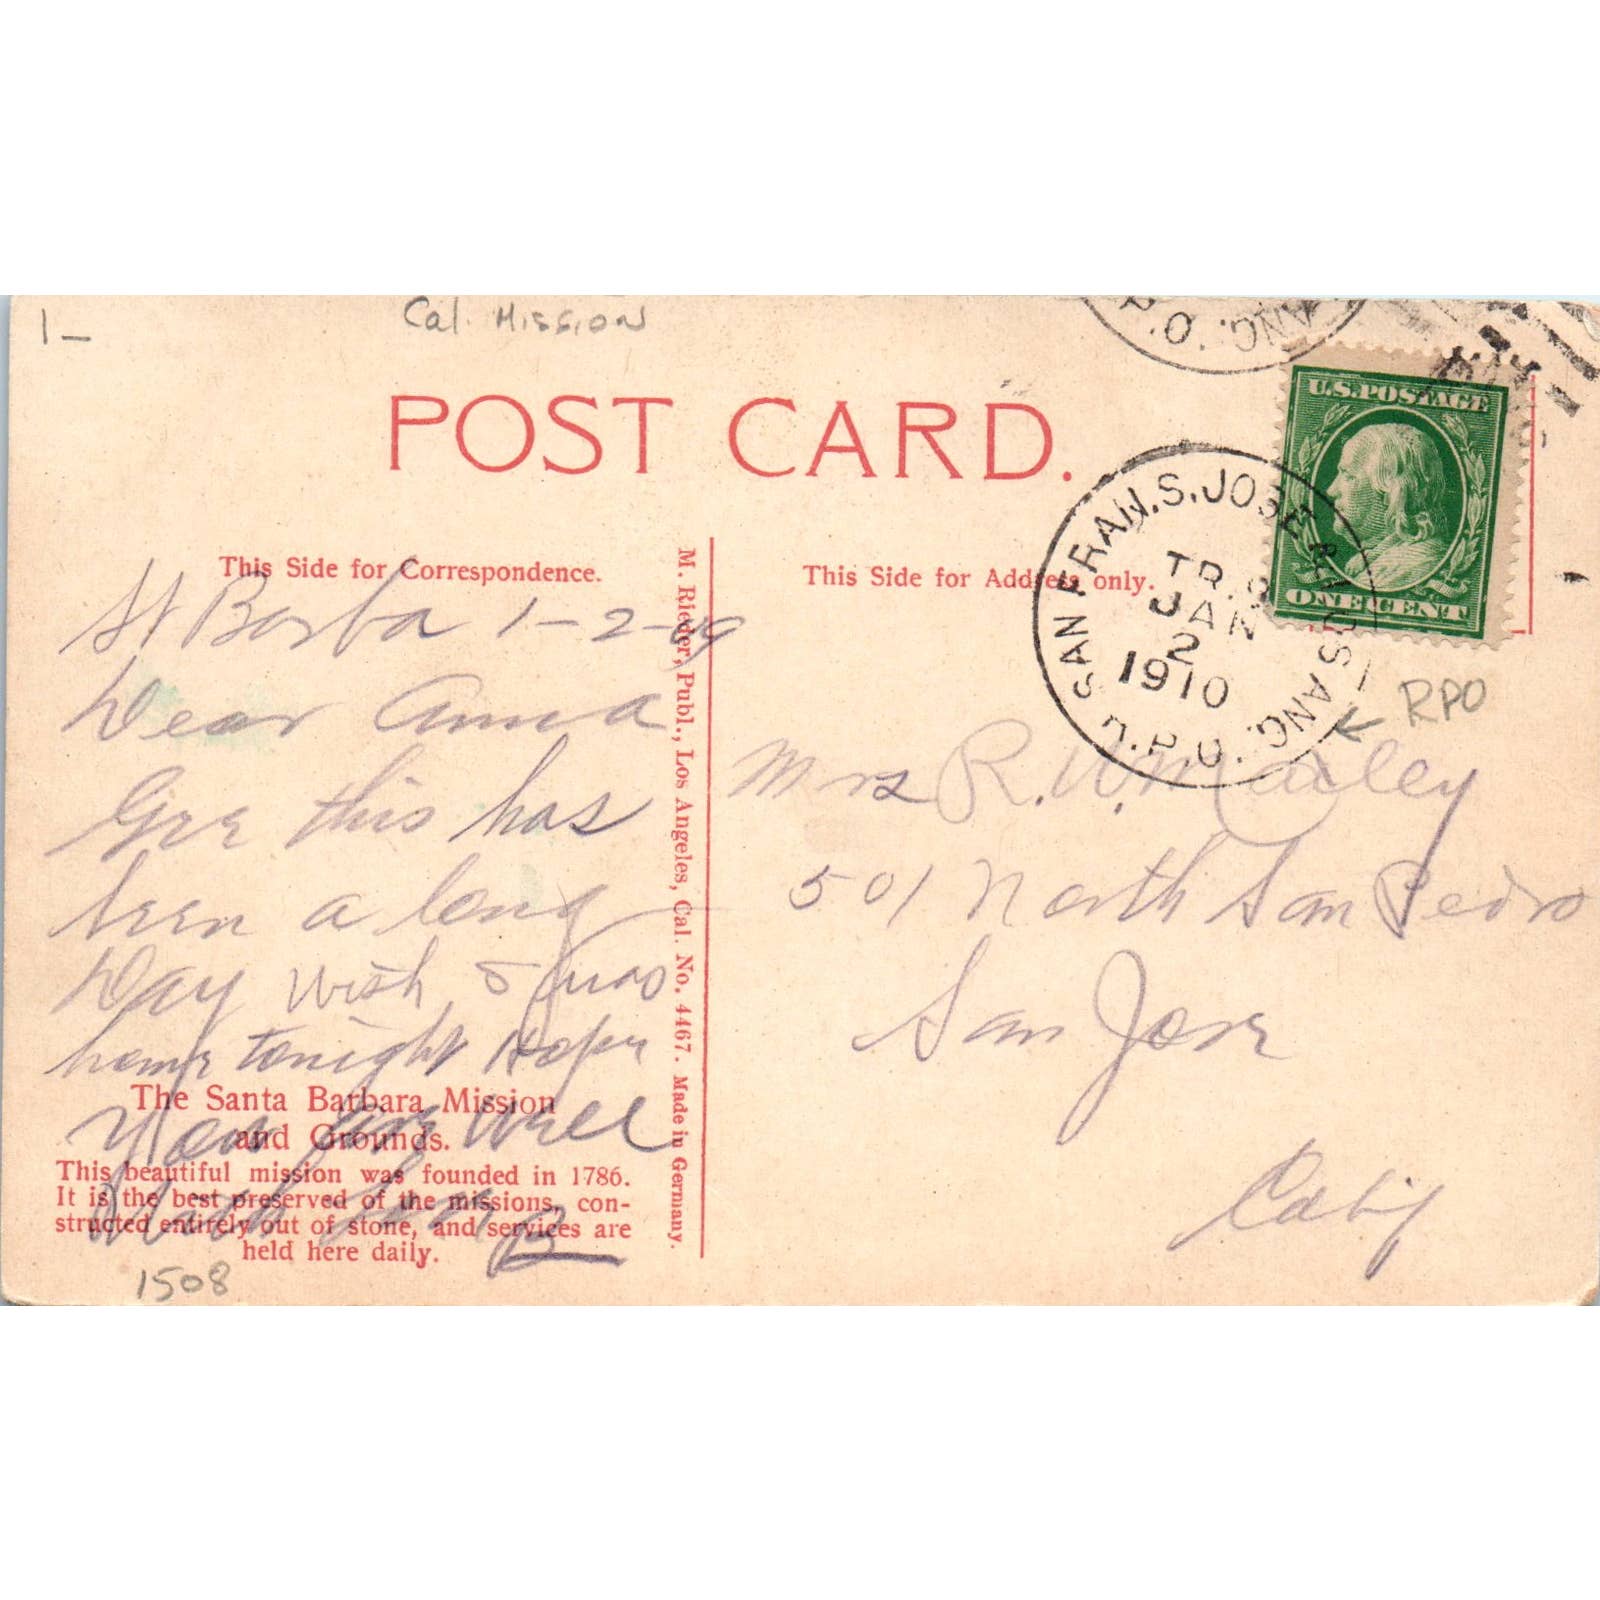 1-
Cal. Mission
POST CARD.
U.S. POSTAGE
ONE CENT
ANG. R.P.O.
SAN FRAN. S. JOSE & LOS ANG. R.P.O.
TR. 9
JAN
2
1910
← RPO
This Side for Correspondence.
This Side for Address only.
St Barba 1-2-09
Dear Anna
Gee this has
been a long
Day wish I was
home tonight Hope
You are Well
The Santa Barbara Mission
and Grounds.
This beautiful mission was founded in 1786.
It is the best preserved of the missions, con-
structed entirely out of stone, and services are
held here daily.
B
1508
M. Rieder, Publ., Los Angeles, Cal. No. 4467. Made in Germany.
Mrs R. W. Maxley
501 North San Pedro
San Jose
Calif